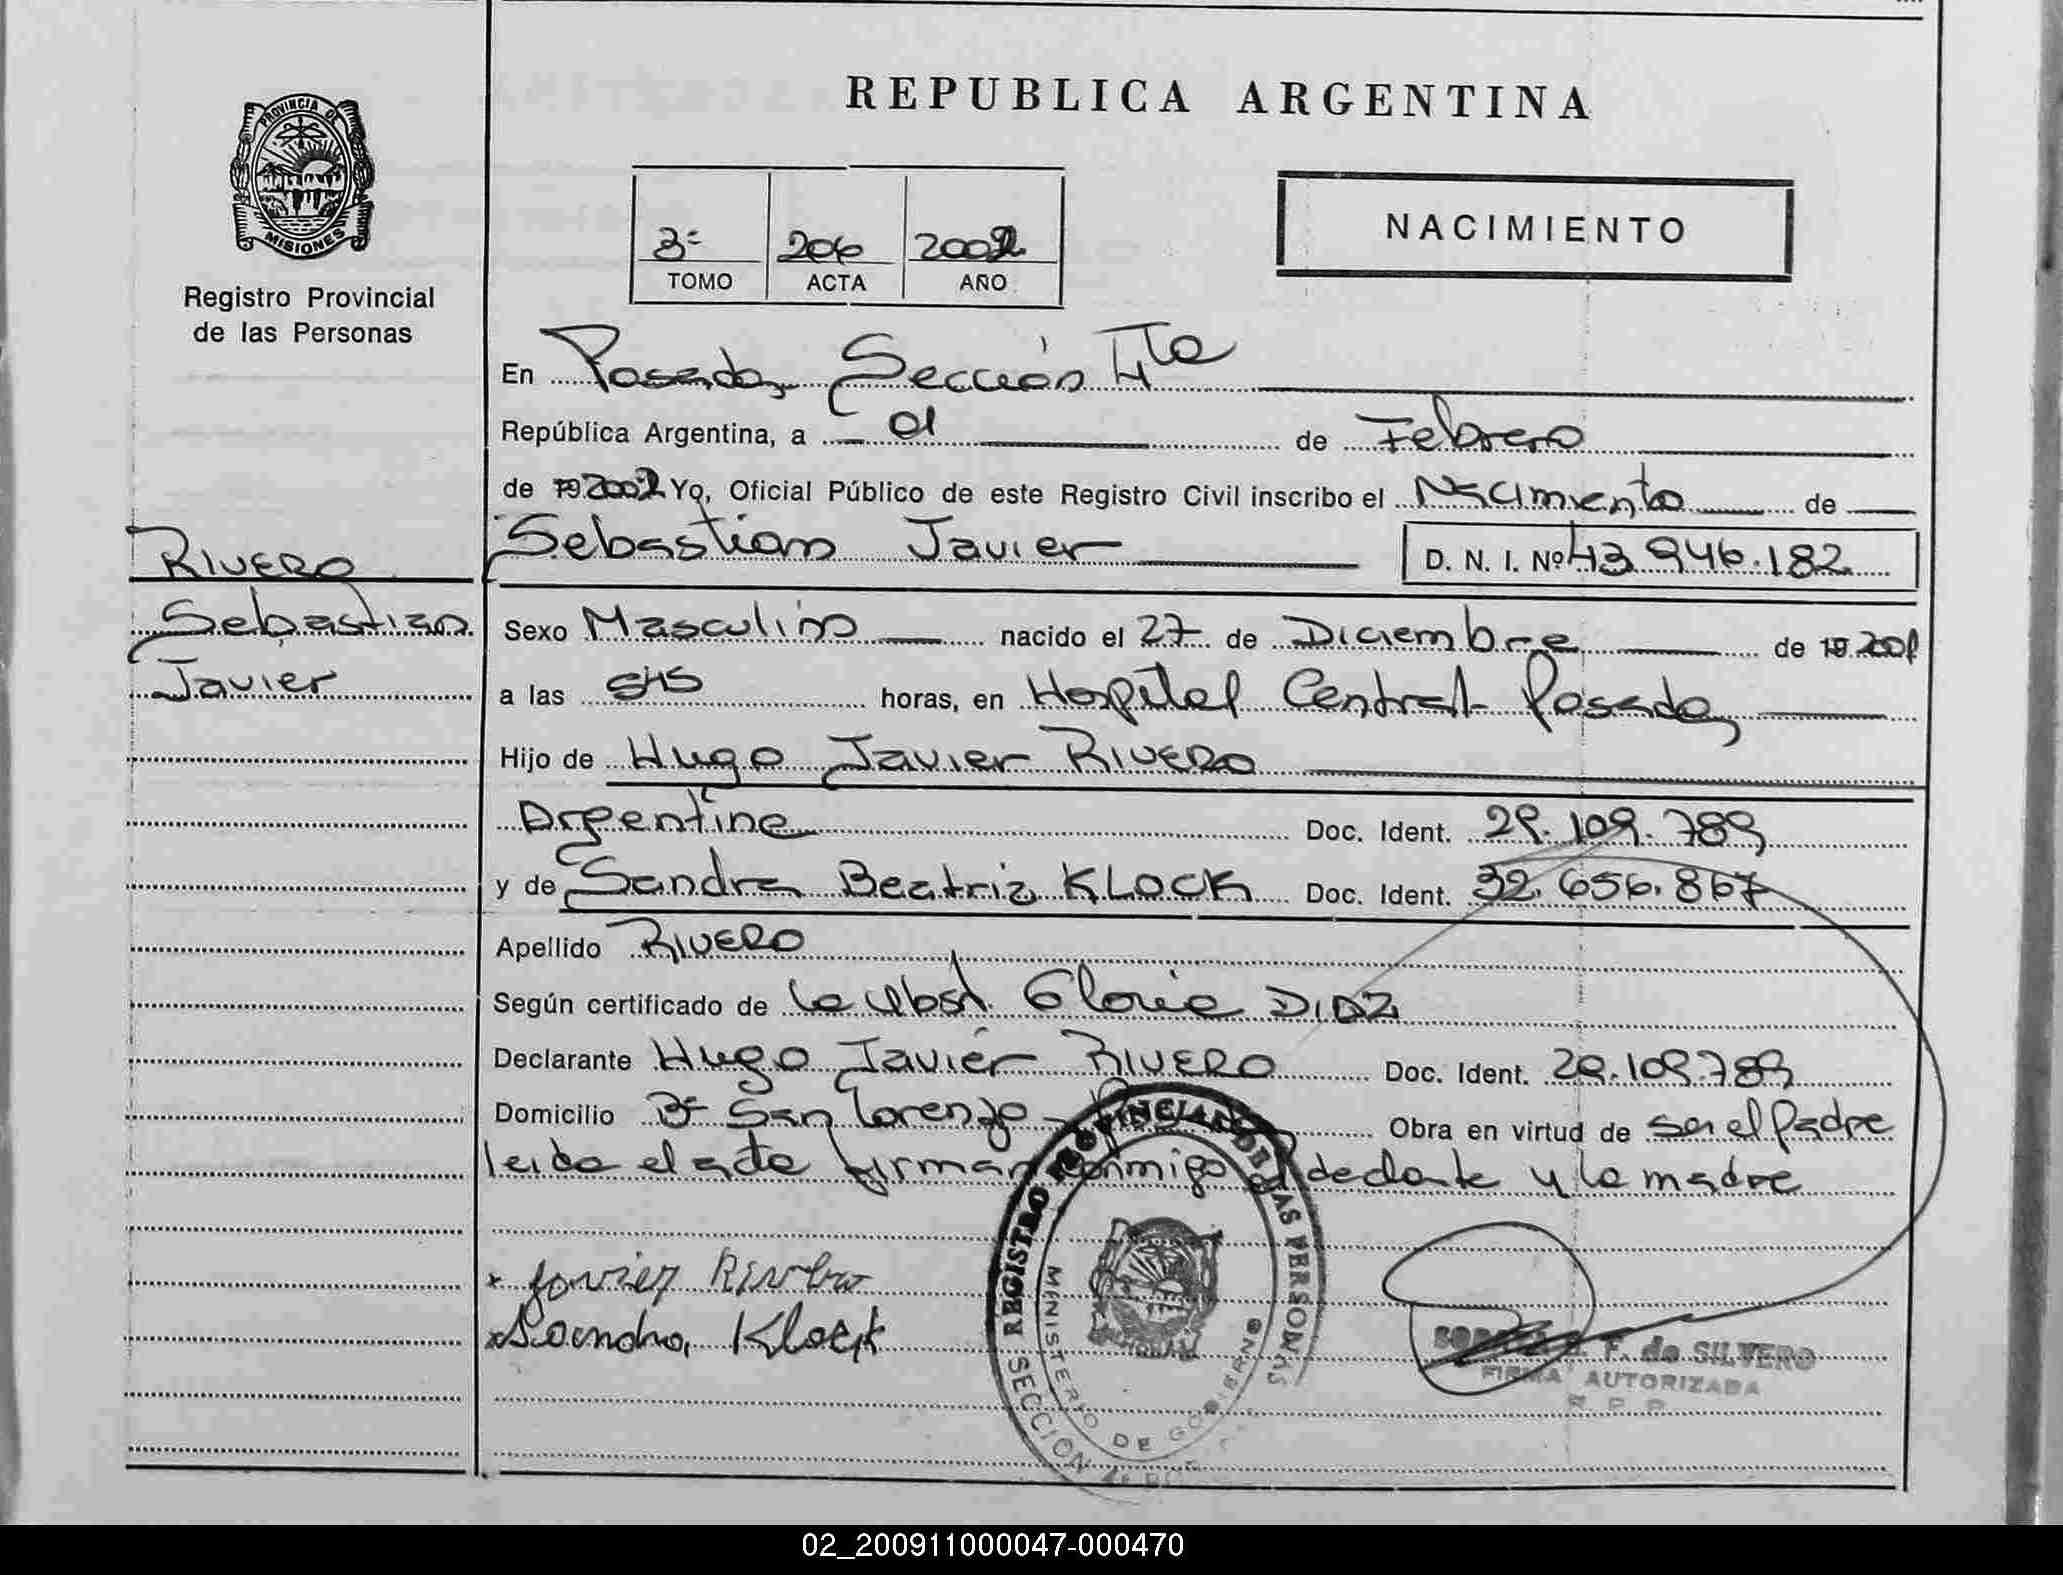 REPUBLICA ARGENTINA
PROVINCIA DE
MISIONES
Registro Provincial
de las Personas
3º 206 2002
TOMO ACTA AÑO
NACIMIENTO
En Posadas Sección 4ta
República Argentina, a 01 de Febrero
de 19 2002 Yo, Oficial Público de este Registro Civil inscribo el Nacimiento de
Sebastian Javier D. N. I. Nº 43.946.182
RIVERO
Sebastian
Javier
Sexo Masculino nacido el 27 de Diciembre de 19 2001
a las 5hs horas, en Hospital Central Posadas
Hijo de Hugo Javier RIVERO
Argentina Doc. Ident. 29.109.789
y de Sandra Beatriz KLOCK Doc. Ident. 32.656.867
Apellido RIVERO
Según certificado de la Obst. Gloria DIAZ
Declarante Hugo Javier RIVERO Doc. Ident. 29.109.789
Domicilio Bº San Lorenzo Obra en virtud de ser el Padre
leida el acta firman conmigo el declante y la madre
x Javier Rivero
x Sandra Klock
REGISTRO PROVINCIAL DE LAS PERSONAS
MINISTERIO DE GOBIERNO
SECCION 4ª
F. de SILVERO
FIRMA AUTORIZADA
R P P
02_200911000047-000470